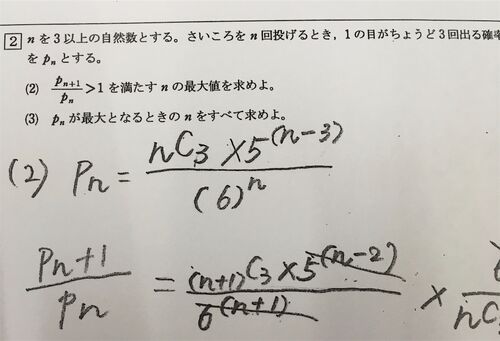 2 nを3以上の自然数とする。さいころをn回投げるとき，1の目がちょうど3回出る確率
をpₙとする。
(2) pₙ₊₁/pₙ>1を満たすnの最大値を求めよ。
(3) pₙが最大となるときのnをすべて求めよ。
(2) Pn = nC3 × 5^(n-3) / (6)^n
Pn+1/Pn = (n+1)C3 × 5^(n-2) / 6^(n+1) × 6 / nC